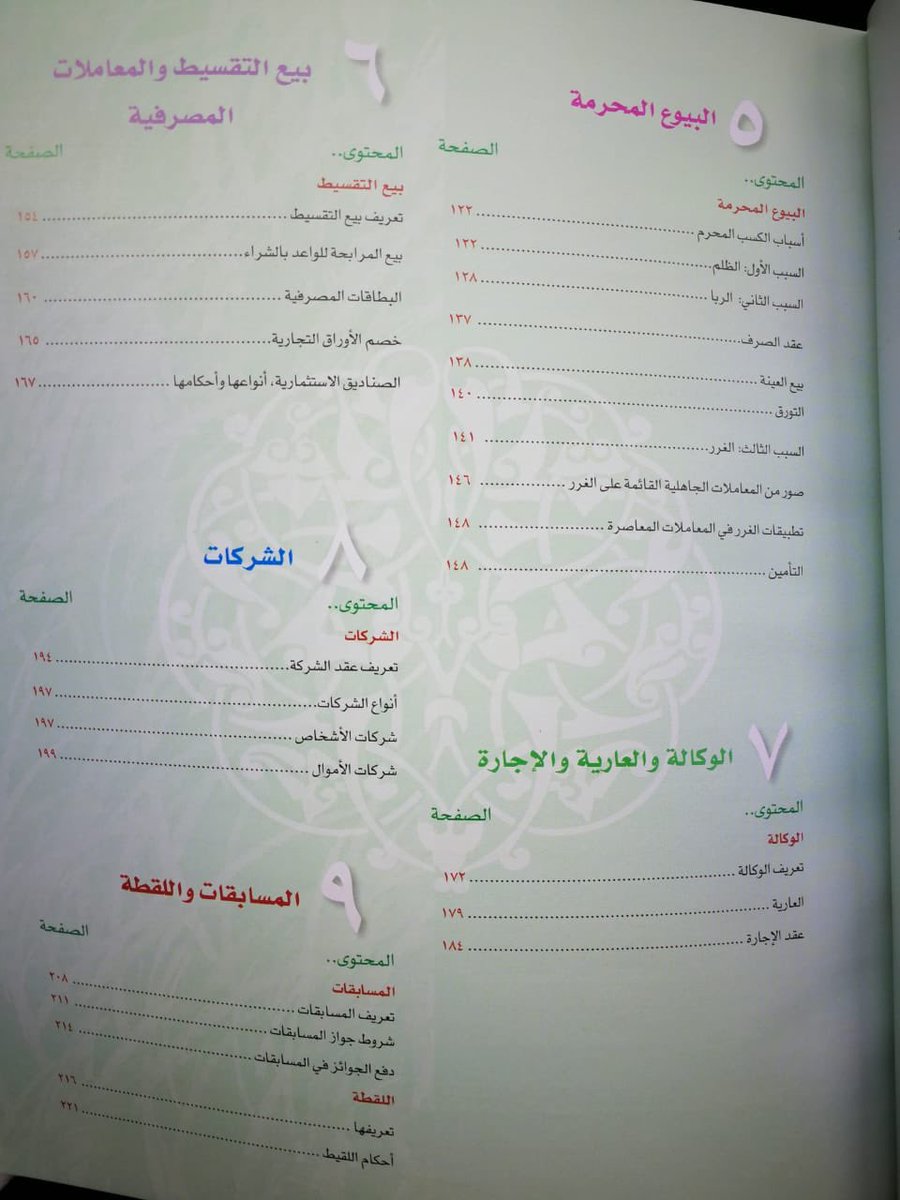 ٥
البيوع المحرمة
المحتوى.. الصفحة
البيوع المحرمة
أسباب الكسب المحرم ١٢٢
السبب الأول: الظلم ١٢٢
السبب الثاني: الربا ١٢٨
عقد الصرف ١٣٧
بيع العينة ١٣٨
التورق ١٤٠
السبب الثالث: الغرر ١٤١
صور من المعاملات الجاهلية القائمة على الغرر ١٤٦
تطبيقات الغرر في المعاملات المعاصرة ١٤٨
التأمين ١٤٨
٦
بيع التقسيط والمعاملات
المصرفية
المحتوى.. الصفحة
بيع التقسيط
تعريف بيع التقسيط ١٥٤
بيع المرابحة للواعد بالشراء ١٥٧
البطاقات المصرفية ١٦٠
خصم الأوراق التجارية ١٦٥
الصناديق الاستثمارية، أنواعها وأحكامها ١٦٧
٧
الوكالة والعارية والإجارة
المحتوى.. الصفحة
الوكالة
تعريف الوكالة ١٧٢
العارية ١٧٩
عقد الإجارة ١٨٤
٨
الشركات
المحتوى.. الصفحة
الشركات
تعريف عقد الشركة ١٩٤
أنواع الشركات ١٩٧
شركات الأشخاص ١٩٧
شركات الأموال ١٩٩
٩
المسابقات واللقطة
المحتوى.. الصفحة
المسابقات
تعريف المسابقات ٢٠٨
شروط جواز المسابقات ٢١١
دفع الجوائز في المسابقات ٢١٤
اللقطة
تعريفها ٢١٦
أحكام اللقيط ٢٢١